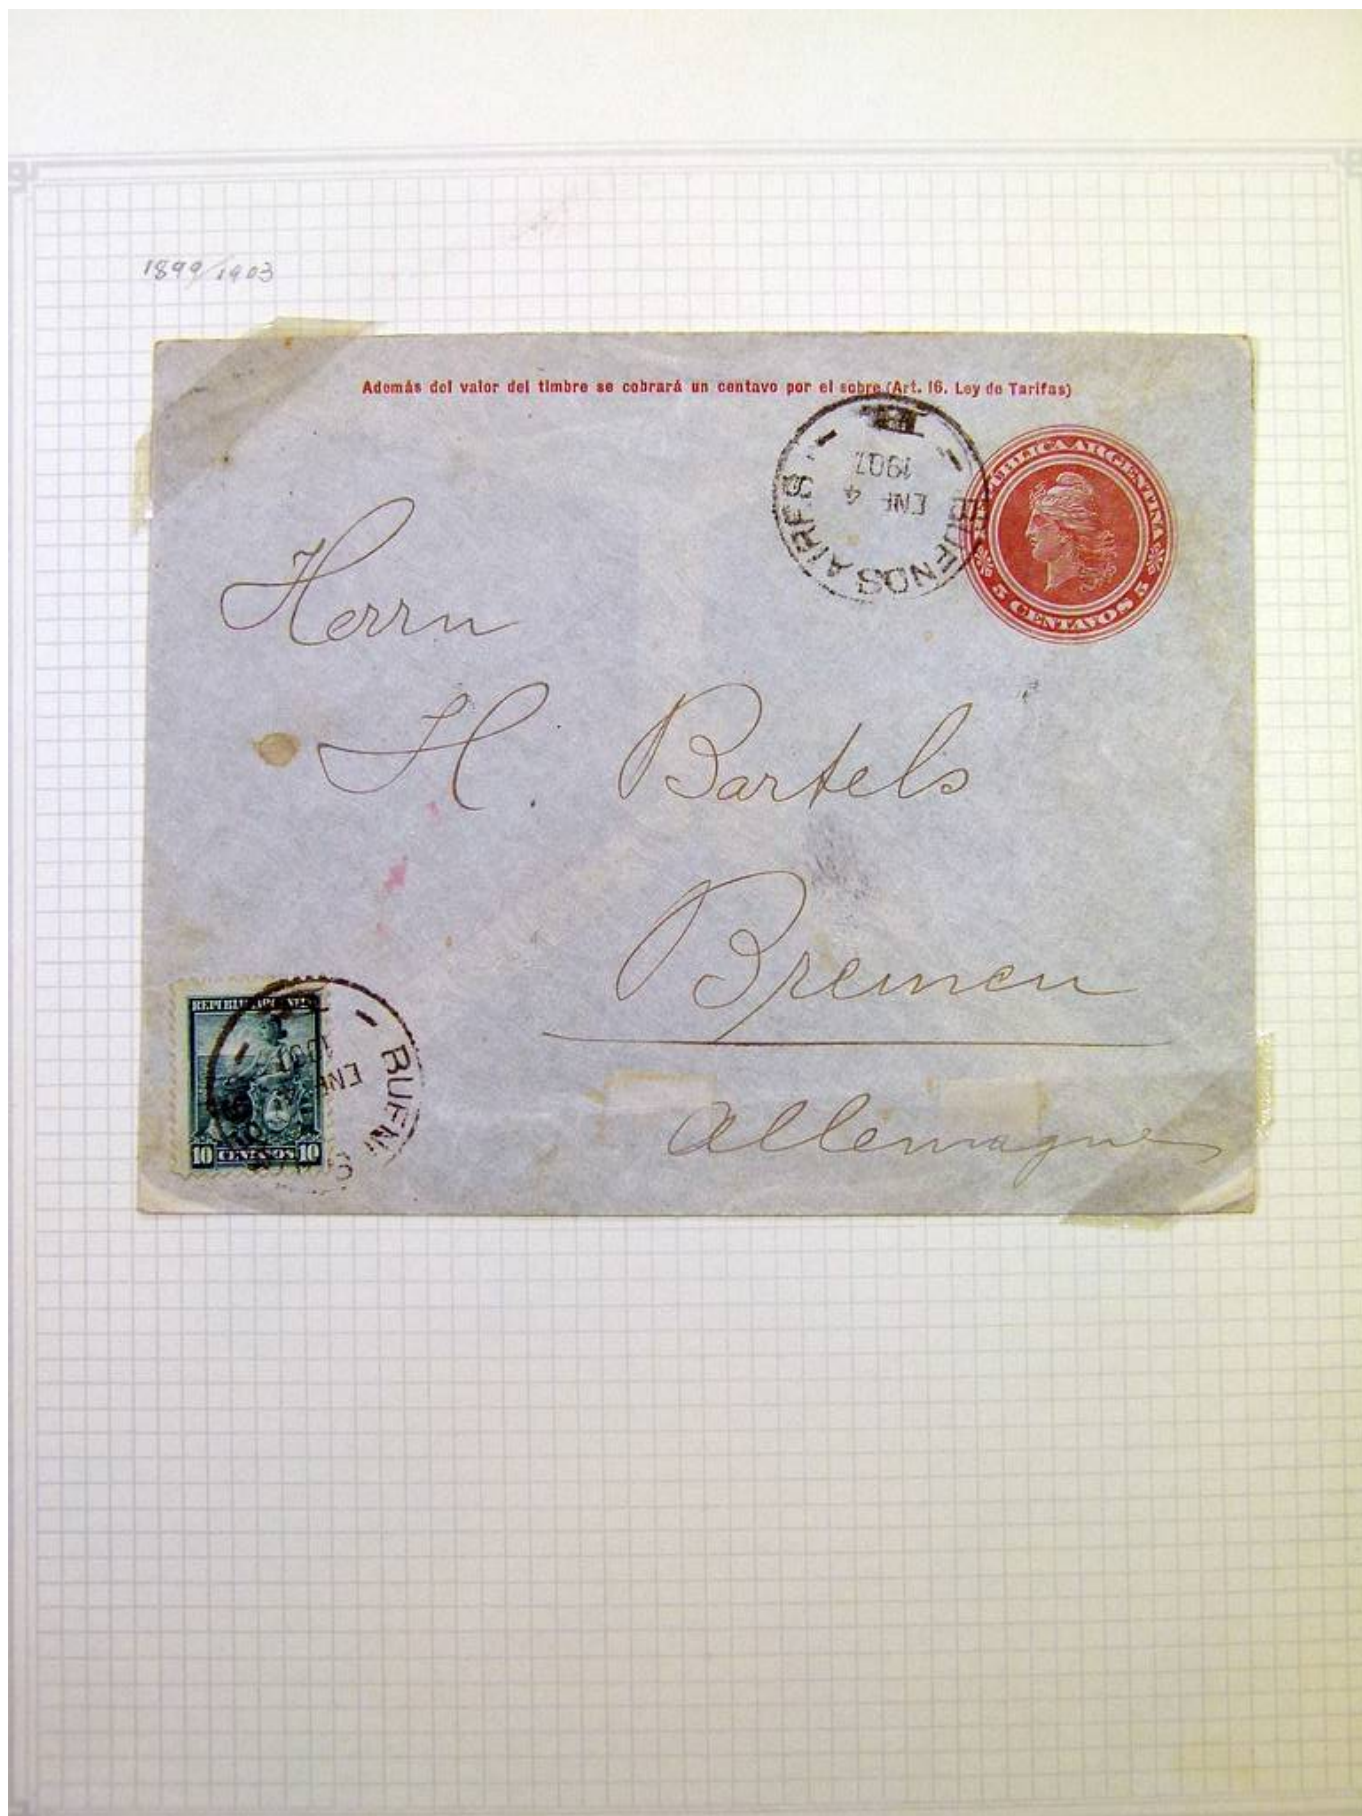 1899/1903
Además del valor del timbre se cobrará un centavo por el sobre (Art. 16. Ley de Tarifas)
BUENOS AIRES
ENE 4
1907
REPUBLICA ARGENTINA
5 CENTAVOS 5
Herrn
H. Bartels
Bremen
Allemagne
REPUBLICA ARGENTINA
10 CENTAVOS 10
BUEN
ENE